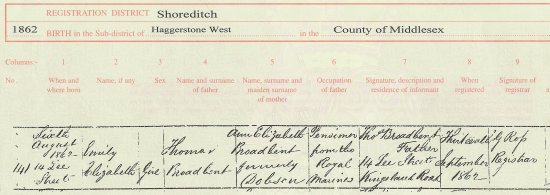 REGISTRATION DISTRICT Shoreditch
1862 BIRTH in the Sub-district of Haggerstone West in the County of Middlesex
Columns:- 1 2 3 4 5 6 7 8 9
No. When and where born Name, if any Sex Name and surname of father Name, surname and maiden surname of mother Occupation of father Signature, description and residence of informant When registered Signature of registrar
141
August
1862
14 Lee
Street
Emily
Elizabeth
Girl
Thomas
Broadbent
Ann Elizabeth
Broadbent
formerly
Dobson
Pensioner
from the
Royal
Marines
Thos Broadbent
Father
14 Lee Street
Kingsland Road
Thirteenth
September
1862
Registrar